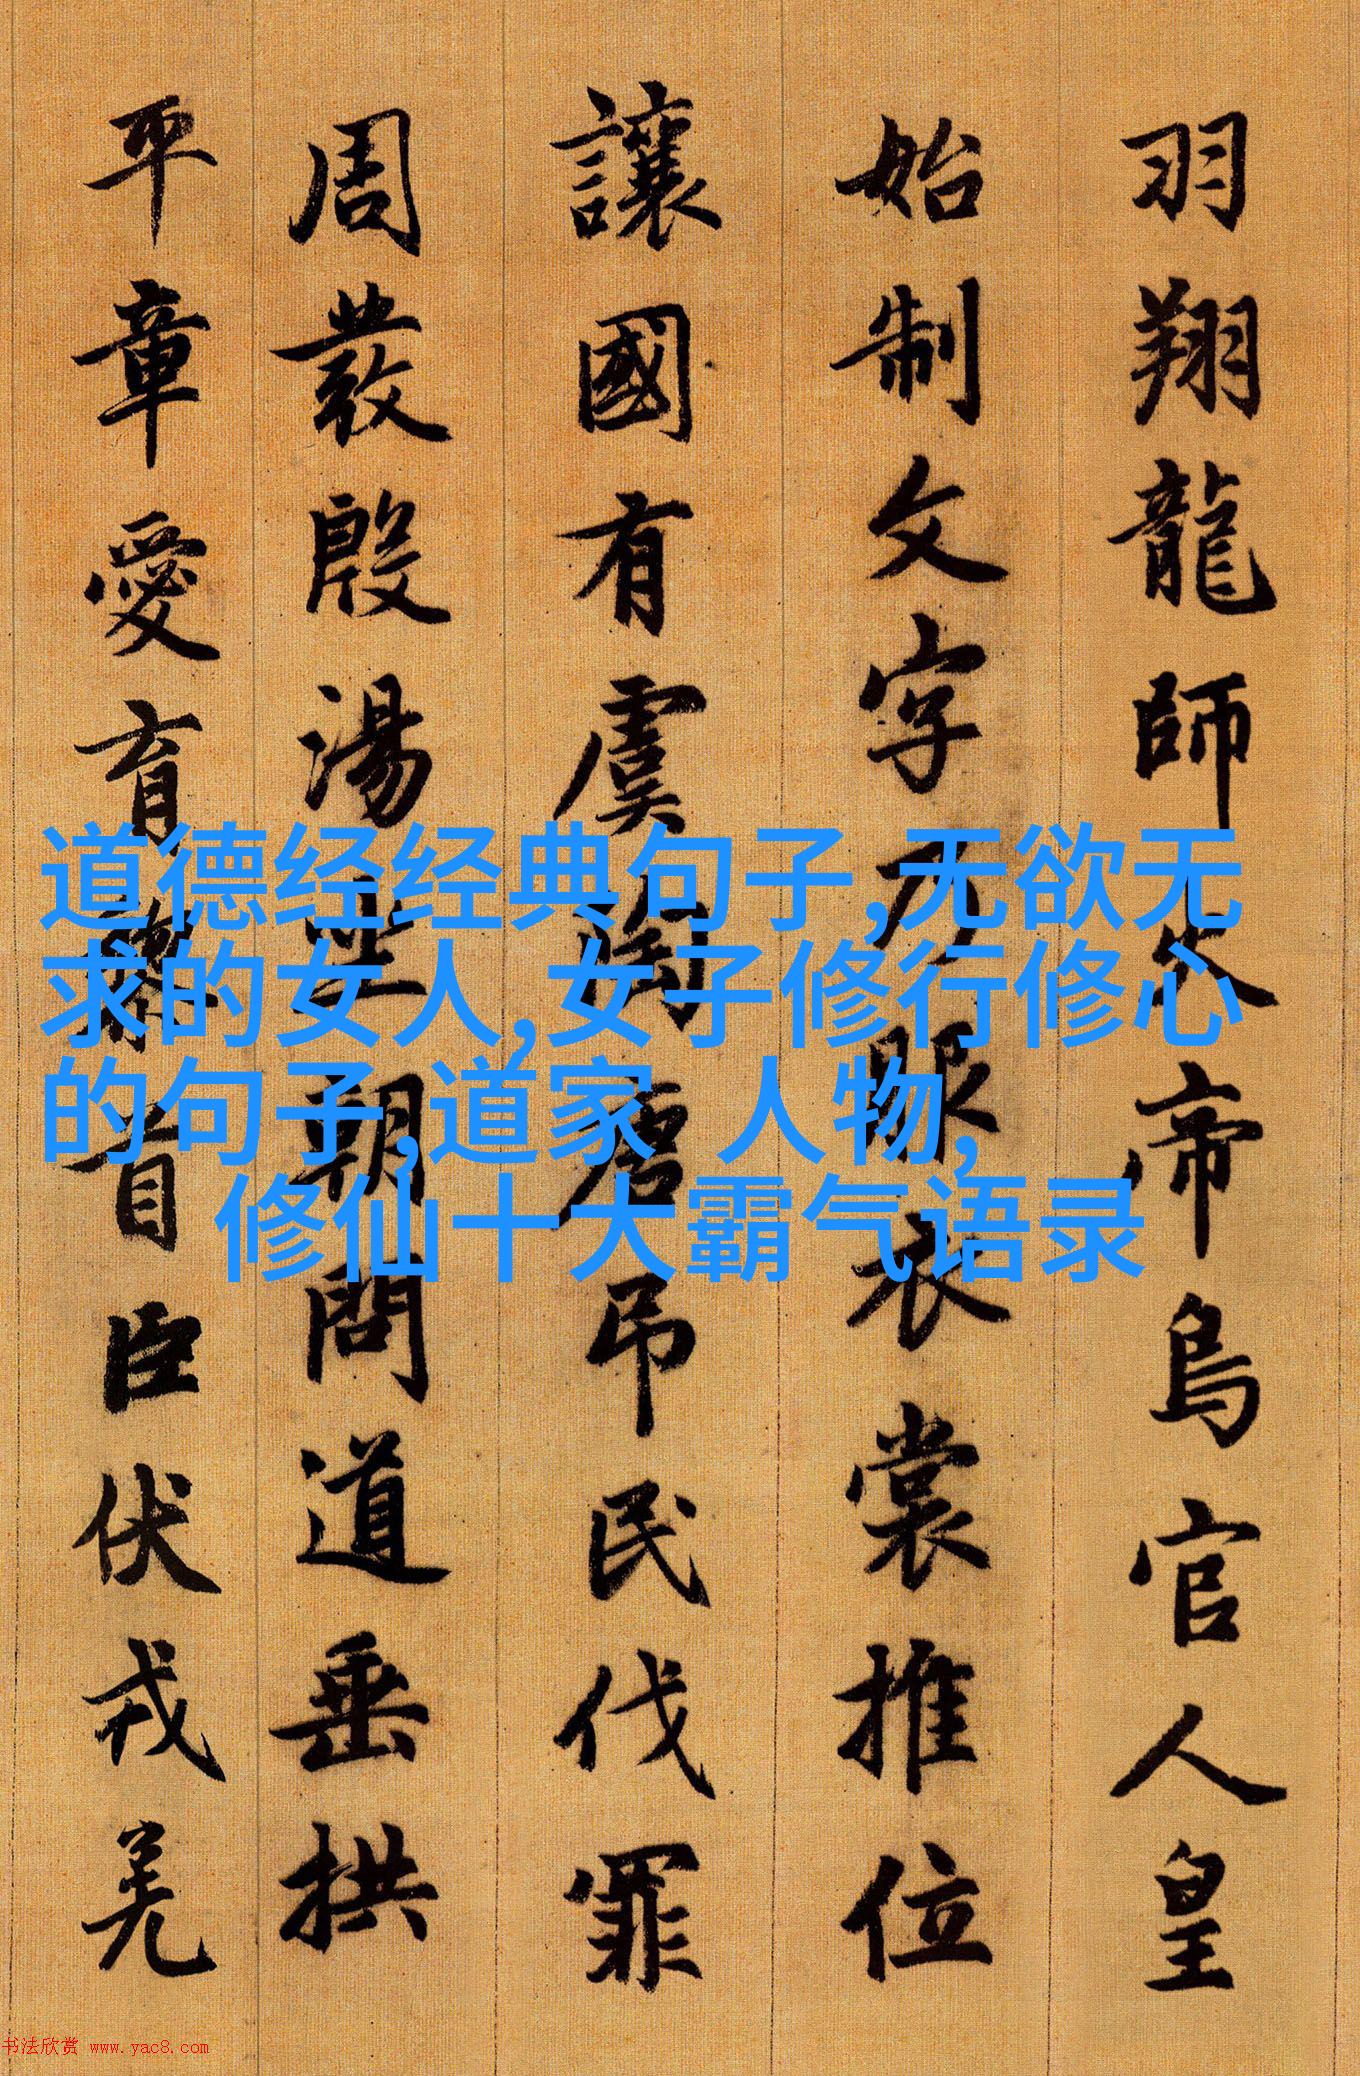 羽翔龍師火帝鳥官人皇
始制文字乃服衣裳推位
讓國有虞陶唐吊民伐罪
周發殷湯坐朝問道垂拱
平章愛育黎首臣伏戎羌
道德经经典句子,无欲无
求的女人,女子修行修心
的句子,道家 人物,
修仙十大霸气语录
书法欣赏 www.yac8.com